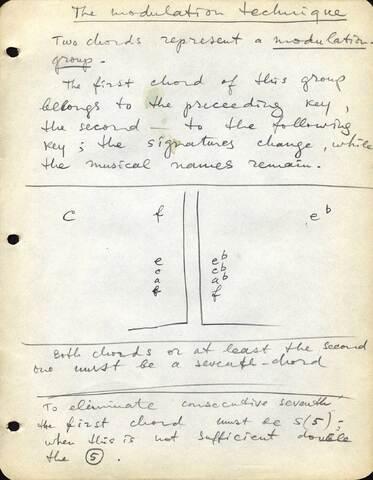 The modulation technique
Two chords represent a modulation
group.
The first chord of this group
belongs to the preceeding key,
the second — to the following
key; the signatures change, while
the musical names remain.
C f e♭
e e♭
c c♭
a a♭
f f
Both chords or at least the second
one must be a seventh-chord
To eliminate consecutive seventh
the first chord must be S(5);
when this is not sufficient double
the ⑤.